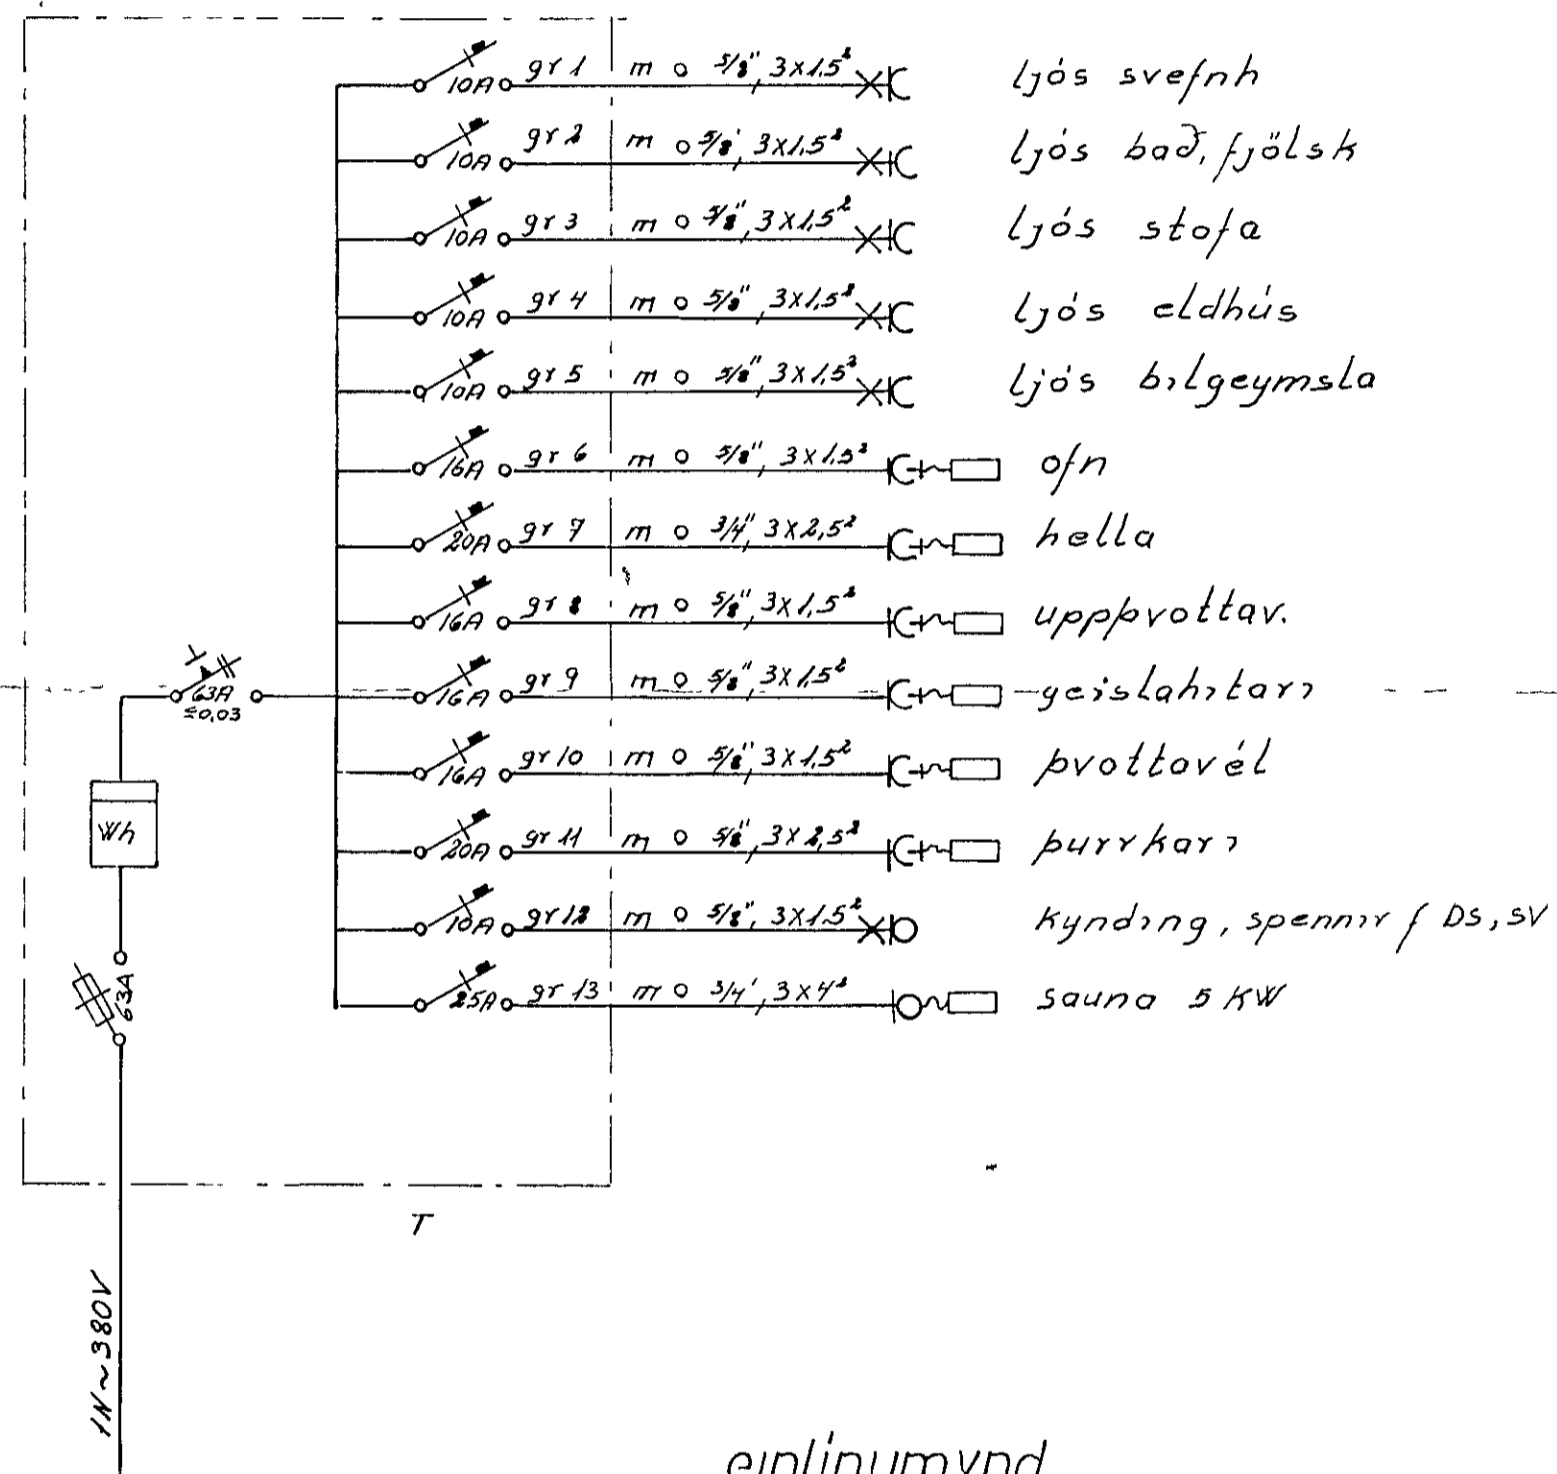 10A gr 1 m o 5/8", 3x1,5² ljós svefnh
10A gr 2 m o 5/8', 3x1,5² ljós bað, fjölsk
10A gr 3 m o 5/8", 3x1,5² ljós stofa
10A gr 4 m o 5/8", 3x1,5² ljós eldhús
10A gr 5 m o 5/8", 3x1,5² ljós bilgeymsla
16A gr 6 m o 5/8", 3x1,5² ofn
20A gr 7 m o 3/4", 3x2,5² hella
16A gr 8 m o 5/8", 3x1,5² uppþvottav.
63A
≤0,03
16A gr 9 m o 5/8", 3x1,5² geislahitari
16A gr 10 m o 5/8", 3x1,5² þvottavél
Wh
20A gr 11 m o 5/8", 3x2,5² þurrkari
10A gr 12 m o 5/8", 3x1,5² kynding, spennir f DS, SV
63A
25A gr 13 m o 3/4', 3x4² sauna 5 KW
T
1N~380V
einlínumynd